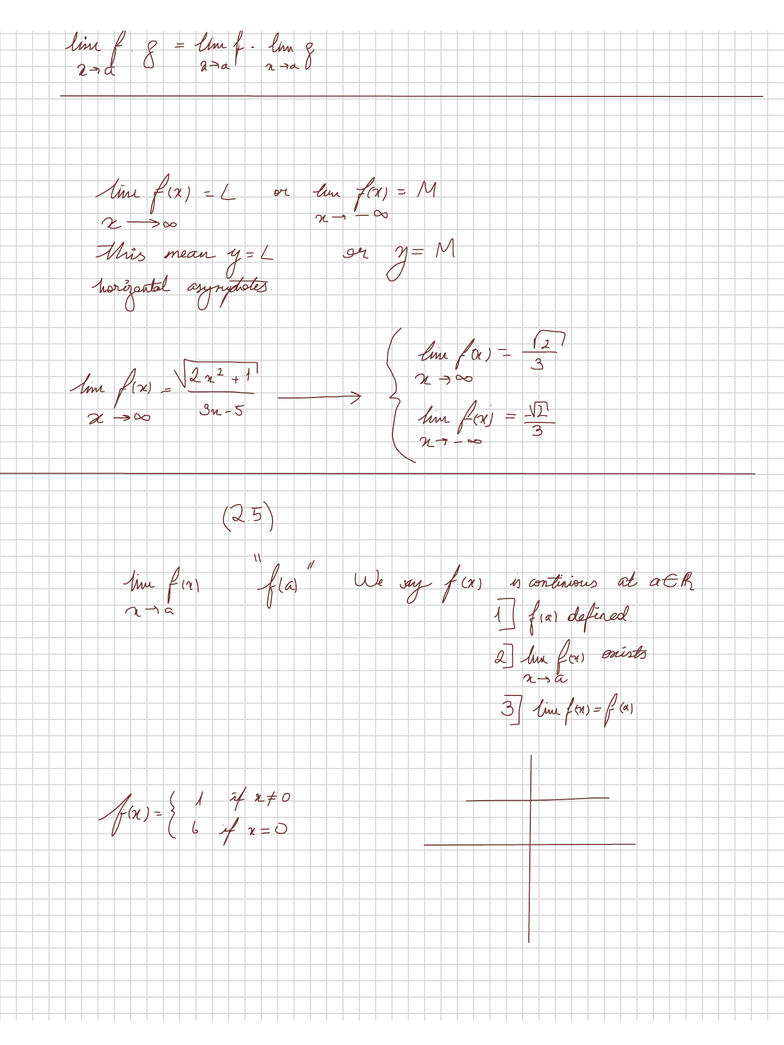 lim f . g = lim f . lim g
x→a x→a x→a
lim f(x) = L or lim f(x) = M
x → ∞ x → -∞
this mean y = L or y = M
horizontal asymptotes.
lim f(x) = √(2x² + 1) / (3x - 5) → { lim f(x) = √2 / 3
x → ∞ x → ∞
lim f(x) = √2 / 3
x → -∞
(2.5)
lim f(x) "f(a)" We say f(x) is continious at a∈ℝ
x → a
1] f(a) defined
2] lim f(x) exists
x → a
3] lim f(x) = f(a)
f(x) = { 1 if x ≠ 0
6 if x = 0